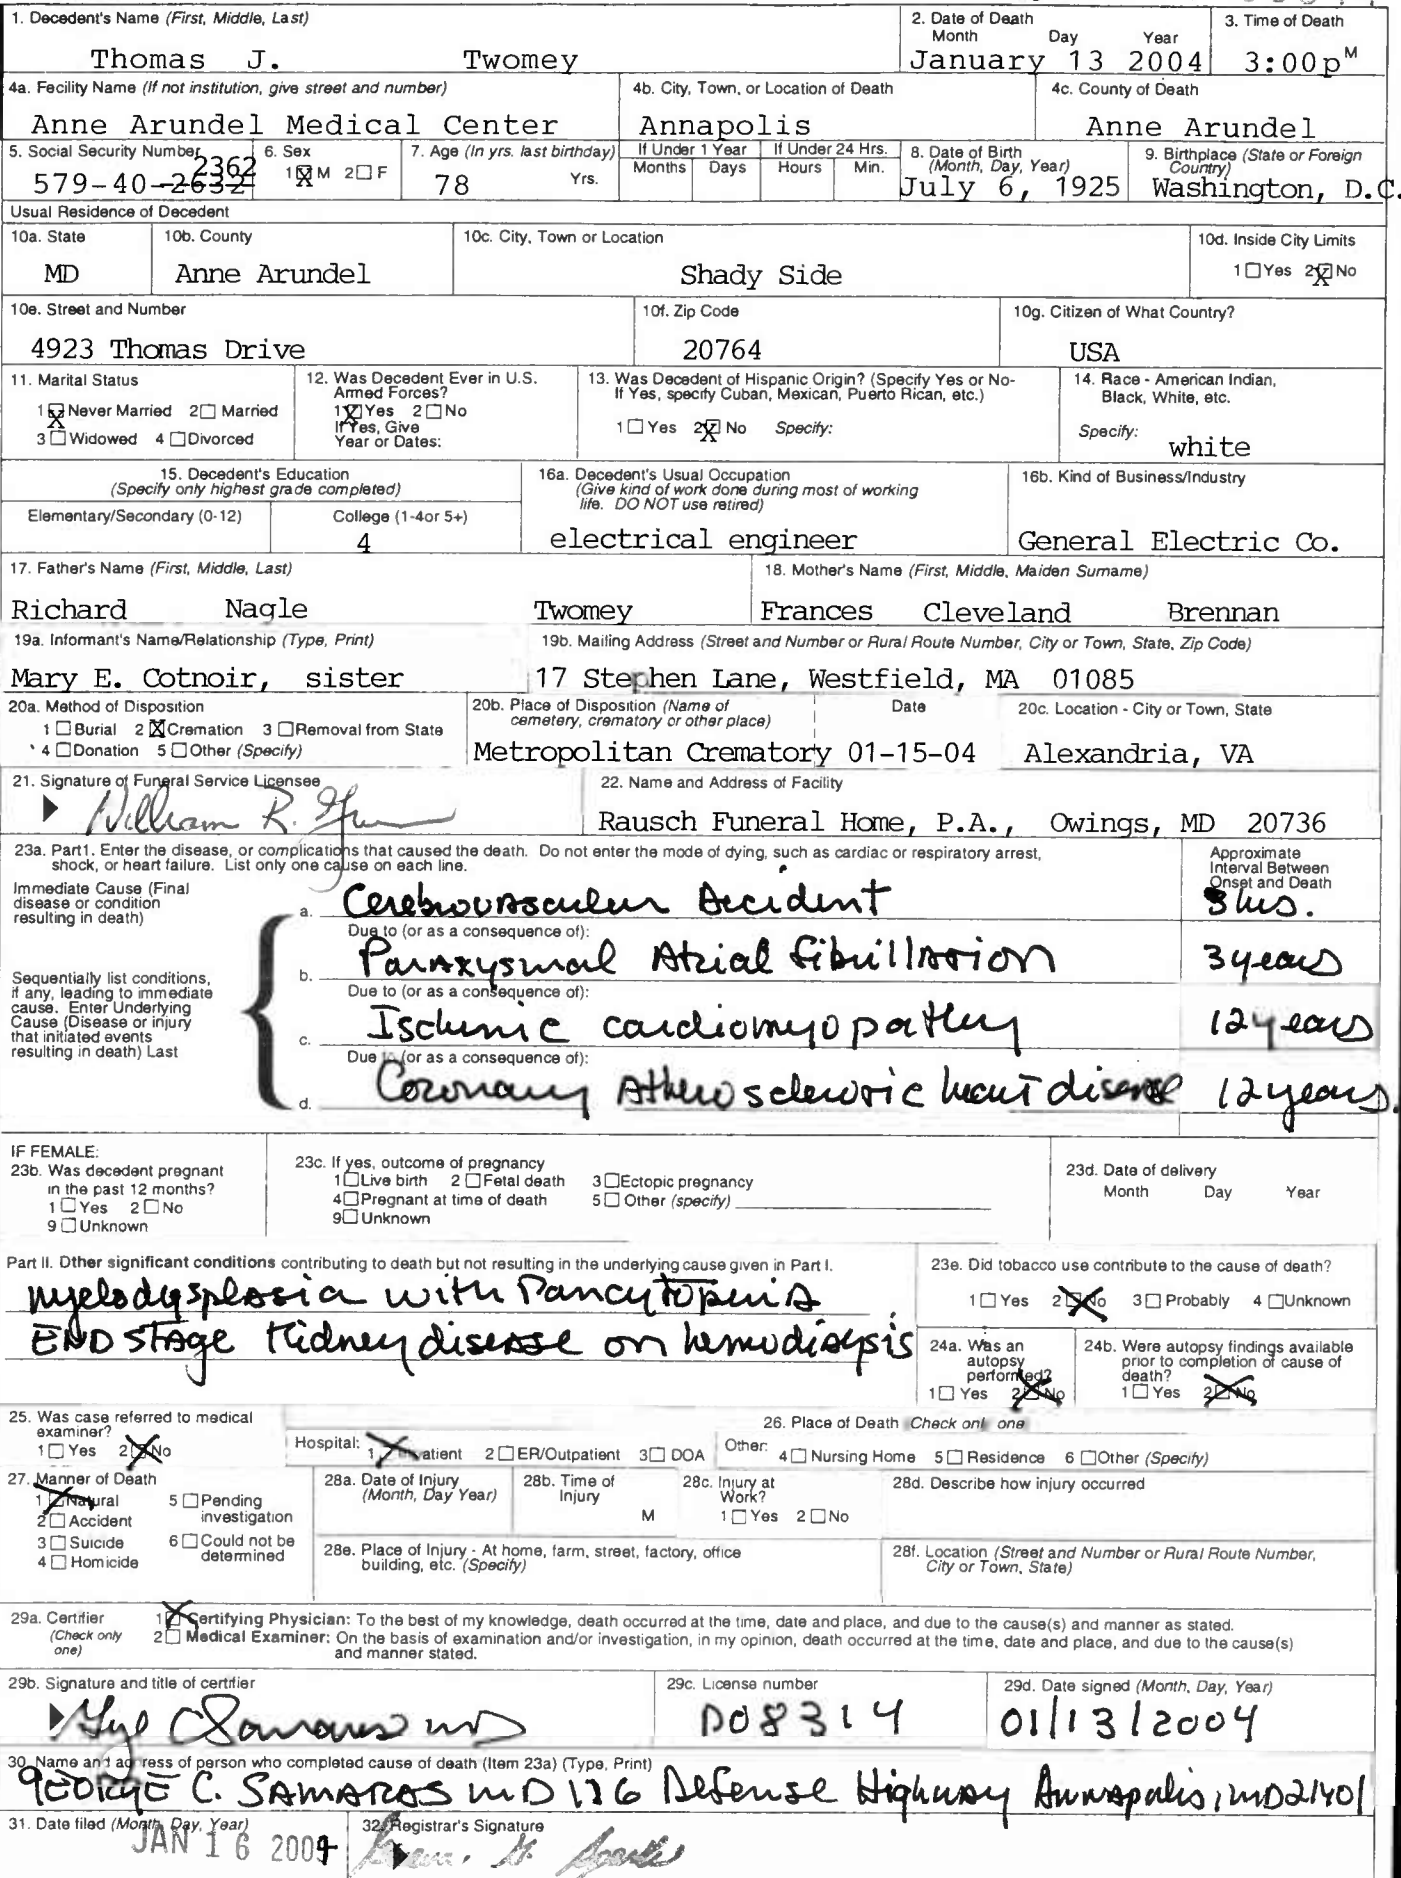 1. Decedent's Name (First, Middle, Last)
2. Date of Death
Month Day Year
3. Time of Death
Thomas J. Twomey
January 13 2004
3:00p M
4a. Fecility Name (If not institution, give street and number)
4b. City, Town, or Location of Death
4c. County of Death
Anne Arundel Medical Center
Annapolis
Anne Arundel
5. Social Security Number
6. Sex
7. Age (In yrs. last birthday)
If Under 1 Year
If Under 24 Hrs.
8. Date of Birth
(Month, Day, Year)
9. Birthplace (State or Foreign
Country)
2362
579-40-2632
1 M 2 F
78 Yrs.
Months Days Hours Min.
July 6, 1925
Washington, D.C.
Usual Residence of Decedent
10a. State
10b. County
10c. City, Town or Location
10d. Inside City Limits
MD
Anne Arundel
Shady Side
1 Yes 2 No
10e. Street and Number
10f. Zip Code
10g. Citizen of What Country?
4923 Thomas Drive
20764
USA
11. Marital Status
1 Never Married 2 Married
3 Widowed 4 Divorced
12. Was Decedent Ever in U.S.
Armed Forces?
1 Yes 2 No
If Yes, Give
Year or Dates:
13. Was Decedent of Hispanic Origin? (Specify Yes or No-
If Yes, specify Cuban, Mexican, Puerto Rican, etc.)
1 Yes 2 No Specify:
14. Race - American Indian,
Black, White, etc.
Specify: white
15. Decedent's Education
(Specify only highest grade completed)
Elementary/Secondary (0-12)
College (1-4or 5+)
4
16a. Decedent's Usual Occupation
(Give kind of work done during most of working
life. DO NOT use retired)
electrical engineer
16b. Kind of Business/Industry
General Electric Co.
17. Father's Name (First, Middle, Last)
18. Mother's Name (First, Middle, Maiden Surname)
Richard Nagle Twomey
Frances Cleveland Brennan
19a. Informant's Name/Relationship (Type, Print)
19b. Mailing Address (Street and Number or Rural Route Number, City or Town, State, Zip Code)
Mary E. Cotnoir, sister
17 Stephen Lane, Westfield, MA 01085
20a. Method of Disposition
1 Burial 2 Cremation 3 Removal from State
4 Donation 5 Other (Specify)
20b. Place of Disposition (Name of
cemetery, crematory or other place)
Date
Metropolitan Crematory 01-15-04
20c. Location - City or Town, State
Alexandria, VA
21. Signature of Funeral Service Licensee
William R.
22. Name and Address of Facility
Rausch Funeral Home, P.A., Owings, MD 20736
23a. Part1. Enter the disease, or complications that caused the death. Do not enter the mode of dying, such as cardiac or respiratory arrest,
shock, or heart failure. List only one cause on each line.
Approximate
Interval Between
Onset and Death
Immediate Cause (Final
disease or condition
resulting in death)
a. Cerebrovascular Accident
hrs.
Due to (or as a consequence of):
b. Paraxysmal Atrial fibrillation
3 years
Sequentially list conditions,
if any, leading to immediate
cause. Enter Underlying
Cause (Disease or injury
that initiated events
resulting in death) Last
Due to (or as a consequence of):
c. Ischemic cardiomyopathy
12 years
Due to (or as a consequence of):
d. Coronary Atherosclerotic heart disease
12 years.
IF FEMALE:
23b. Was decedent pregnant
in the past 12 months?
1 Yes 2 No
9 Unknown
23c. If yes, outcome of pregnancy
1 Live birth 2 Fetal death 3 Ectopic pregnancy
4 Pregnant at time of death 5 Other (specify)
9 Unknown
23d. Date of delivery
Month Day Year
Part II. Other significant conditions contributing to death but not resulting in the underlying cause given in Part I.
myelodysplasia with Pancytopenia
END STAGE Kidney disease on hemodialysis
23e. Did tobacco use contribute to the cause of death?
1 Yes 2 No 3 Probably 4 Unknown
24a. Was an
autopsy
performed?
1 Yes 2 No
24b. Were autopsy findings available
prior to completion of cause of
death?
1 Yes 2 No
25. Was case referred to medical
examiner?
1 Yes 2 No
26. Place of Death Check only one
Hospital: 1 Inpatient 2 ER/Outpatient 3 DOA
Other: 4 Nursing Home 5 Residence 6 Other (Specify)
27. Manner of Death
1 Natural
2 Accident
3 Suicide
4 Homicide
5 Pending
investigation
6 Could not be
determined
28a. Date of Injury
(Month, Day Year)
28b. Time of
Injury
M
28c. Injury at
Work?
1 Yes 2 No
28d. Describe how injury occurred
28e. Place of Injury - At home, farm, street, factory, office
building, etc. (Specify)
28f. Location (Street and Number or Rural Route Number,
City or Town, State)
29a. Certifier
(Check only
one)
1 Certifying Physician: To the best of my knowledge, death occurred at the time, date and place, and due to the cause(s) and manner as stated.
2 Medical Examiner: On the basis of examination and/or investigation, in my opinion, death occurred at the time, date and place, and due to the cause(s)
and manner stated.
29b. Signature and title of certifier
29c. License number
29d. Date signed (Month, Day, Year)
MD
D08314
01/13/2004
30. Name and address of person who completed cause of death (Item 23a) (Type, Print)
GEORGE C. SAMARAS MD 116 Defense Highway Annapolis, MD 21401
31. Date filed (Month, Day, Year)
JAN 16 2004
32. Registrar's Signature